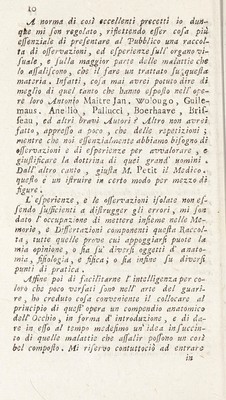 10
A norma di così eccellenti precetti io dun-
que mi son regolato, riflettendo esser cosa più
essenziale di presentare al Pubblico una raccol-
ta di osservazioni, ed esperienze sull' organo vi-
suale, e sulla maggior parte delle malattie che
lo assaliscono, che il fare un trattato su questa
materia. Infatti, cosa mai avrei potuto dire di
meglio di quel tanto che hanno esposto nell' ope-
re loro Antonio Maitre Jan, Wolougo, Guille-
maus. Anellio, Pallucci, Boerhaave, Bris-
seau, ed altri bravi Autori? Altro non avrei
fatto, appresso a poco, che delle repetizioni;
mentre che noi essenzialmente abbiamo bisogno di
osservazioni e di esperienze per avvalorare, e
giustificare la dottrina di quei grand' uomini.
Dall' altro canto, giusta M. Petit il Medico.
questo è un istruire in certo modo per mezzo di
figure.
L' esperienze, e le osservazioni isolate non es-
sendo sufficienti a distrugger gli errori, mi son
dato l' occupazione di mettere insieme nelle Me-
morie, e Dissertazioni componenti questa Raccol-
ta, tutte quelle prove cui appoggiarsi puote la
mia opinione, o sia su' diversi oggetti d' anato-
mia, fisiologia, e fisica; o sia infine su diversi
punti di pratica.
Affine poi di facilitarne l' intelligenza per co-
loro che poco versati sono nell' arte del guari-
re, ho creduto cosa conveniente il collocare al
principio di quest' opera un compendio anatomico
dell' Occhio, in forma d' introduzione, e di da-
re in esso al tempo medesimo un' idea in succin-
to di quelle malattie che assalir possono un così
bel composto. Mi riservo contuttociò ad entrare
in